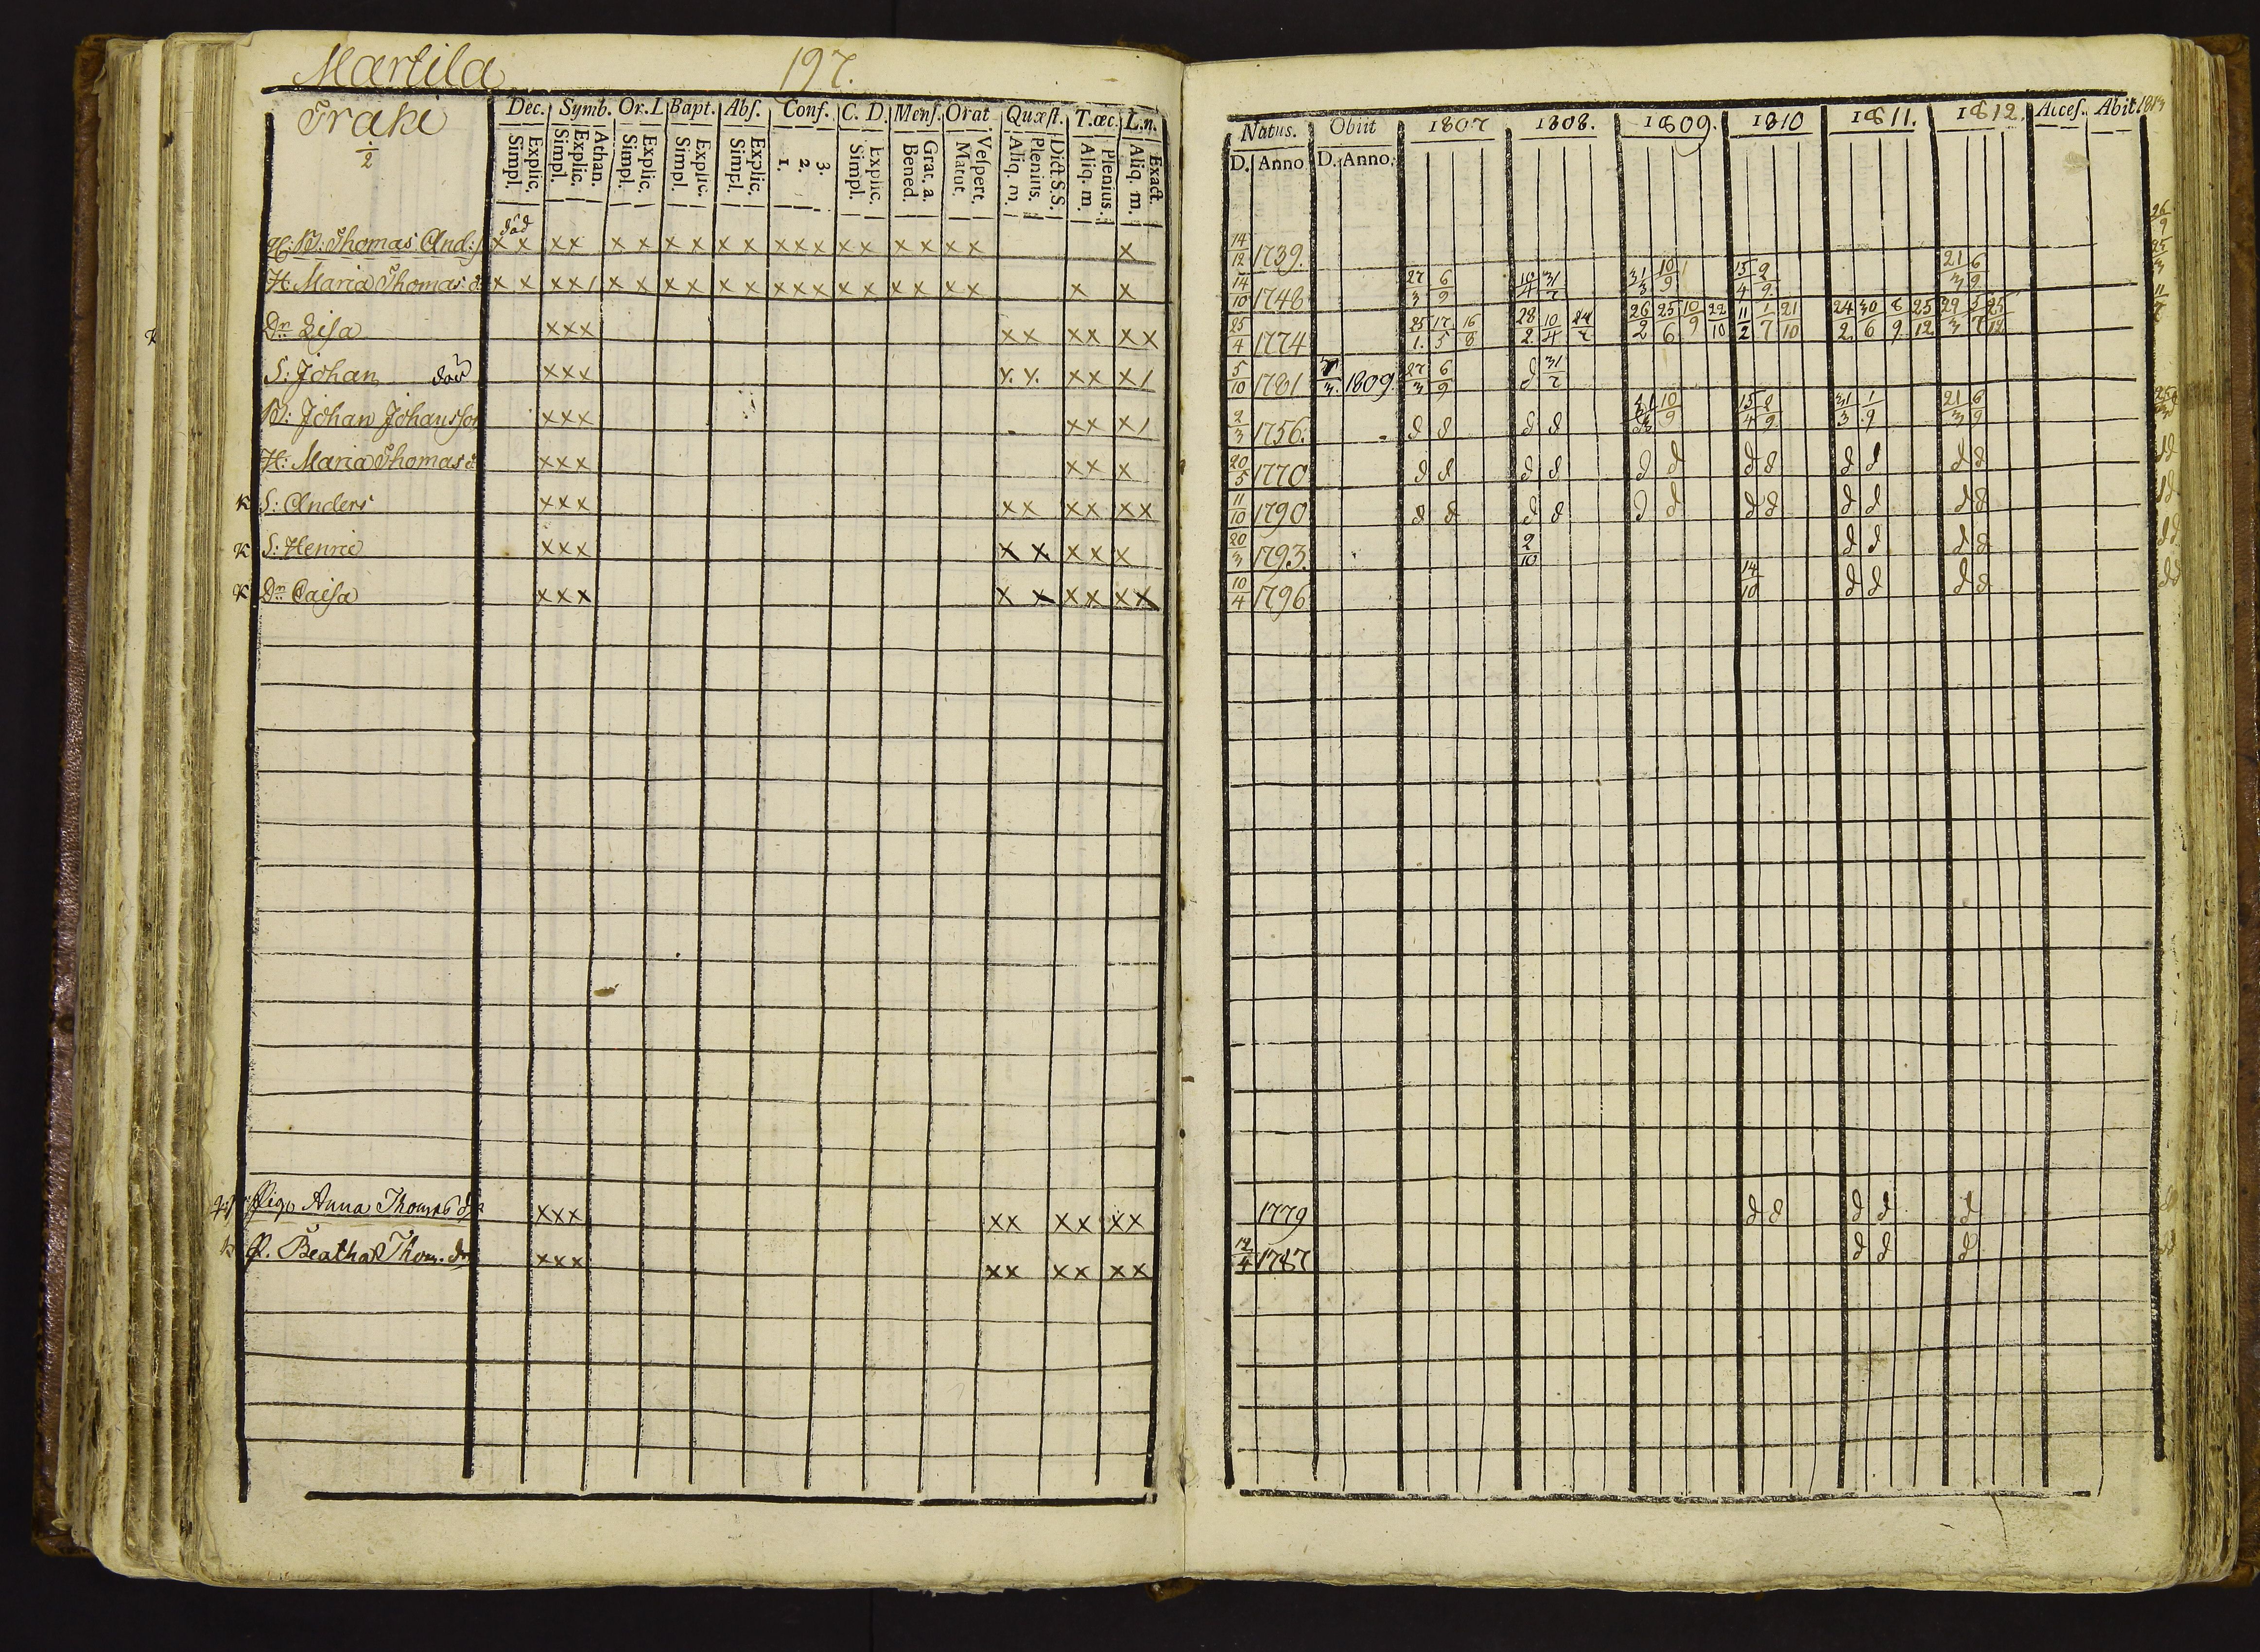 Martila 197.
Traki Dec. Symb. Or. I. Bapt. Abſ. Conf. C. D. Menſ. Orat. Quæſt. T. œc. L. n.
1/2 Explic. Simpl. Athan. Explic. Simpl. Explic. Simpl. Explic. Simpl. Explic. Simpl. 3. 2. 1. Explic. Simpl. Grat. a. Bened. Veſpert. Matut. Dict. S.S. Plenius. Aliq. m. Plenius. Aliq. m. Exact. Aliq. m.
död
B: Thomas And: x x x x x x x x x x x x x x x x x x x x
H: Maria Thomas: d. x x x x / x x x x x x x x x x x x x x x x x
Dr. Lisa x x x x x x x x x
S: Johan död x x x y. y. x x x /
B: Johan Johansson x x x x x x /
H: Maria Thomas d. x x x x x x
K S: Anders x x x x x x x x x
K S: Henric x x x x x x x x
K Dr. Caisa x x x x x x x x x
Pig. Anna Thomas dr x x x x x x x x x
P. Beatha Thom. dr x x x x x x x x x
Natus. Obiit 1807 1808. 1809. 1810 1811. 1812. Acceſ. Abit. 1813
D. Anno D. Anno.
14/12 1739. 26/9
14/10 1748 27/3 6/9 10/4 31/7 31/3 10/9 15/4 2/9 21/3 6/9 25/3
25/4 1774 25/1. 17/5 16/8 28/2. 10/4 24/7 26/2 25/6 10/9 22/10 11/2 1/7 21/10 24/2 30/6 8/9 25/12 29/3 5/7 25/12 11/7
5/10 1781 7/3. 1809. 27/3 6/9 d 31/7
2/3 1756. d d d d 31/3 10/9 15/4 2/9 31/3 1/9 21/3 6/9
20/5 1770 d d d d d d d d d d d d d d
11/10 1790 d d d d d d d d d d d d d d
20/3 1793. 2/10 d d d d d d
10/4 1796 14/10 d d d d d d
1779 d d d d d
12/4 1787 d d d